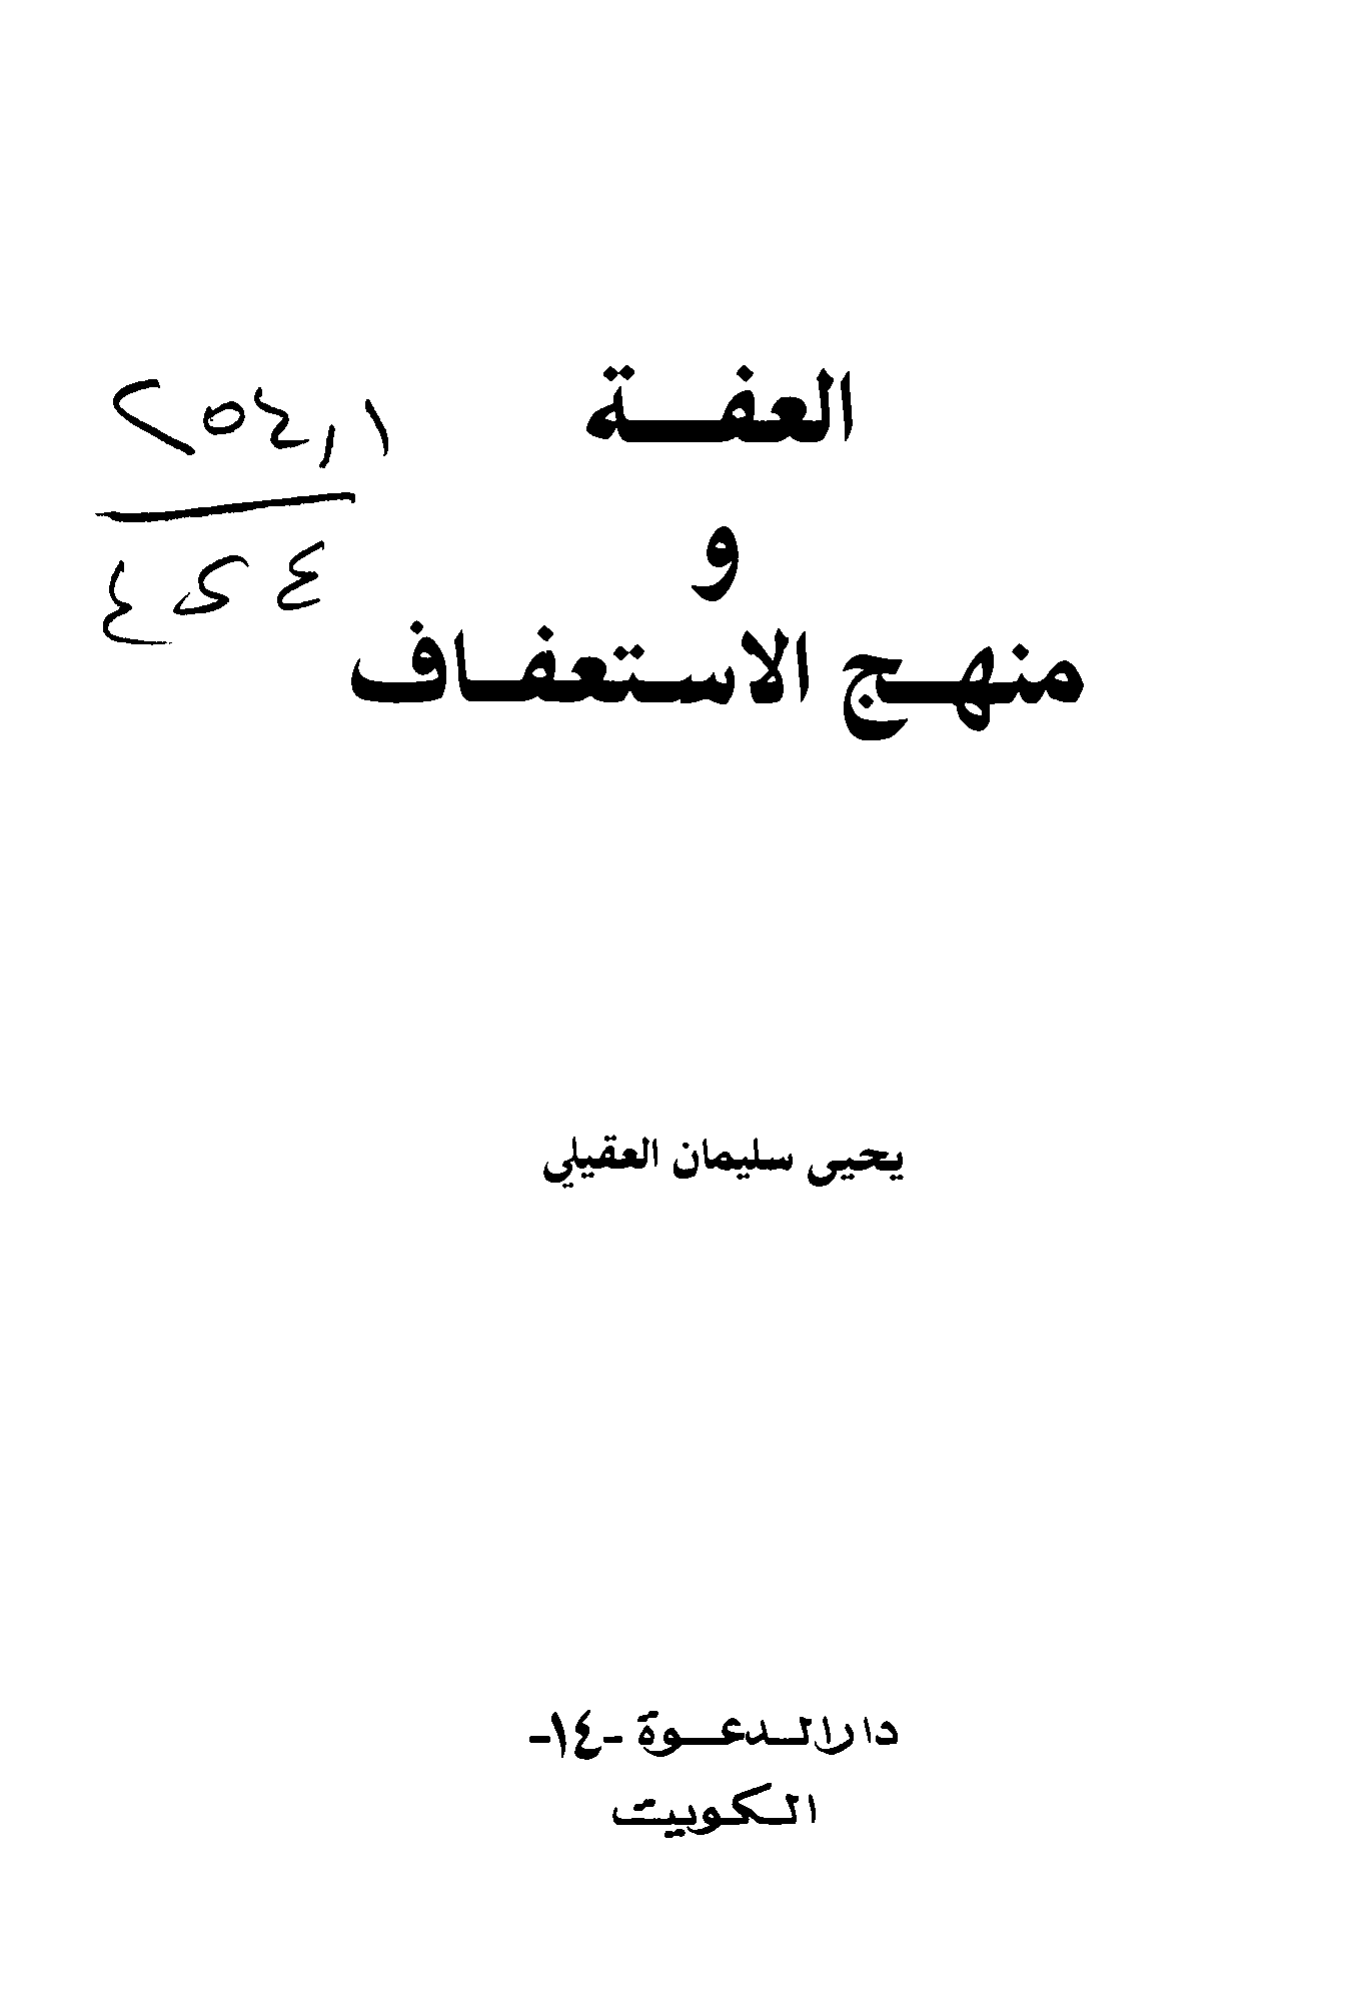 العفة
و
منهج الاستعفاف
يحيى سليمان العقيلي
دار الدعوة -١٤-
الكويت